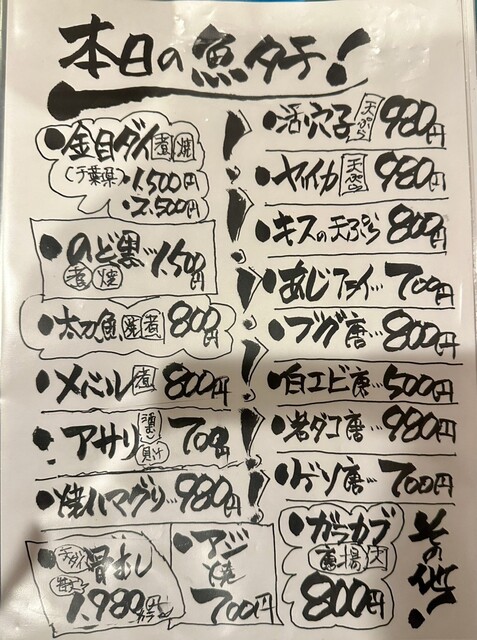 本日の魚タチ!
・金目ダイ 煮 焼
(千葉県)・1,500円
・2,500円
・のど黒…1,500円
煮 焼
・太刀魚 塩焼 煮 800円
・メバル 煮 800円
・アサリ 酒蒸し 貝汁 700円
・焼ハマグリ…980円
骨むし
1,980円から
・アジ
焼
700円
・活穴子 天ぷら 980円
・ヤリイカ 天ぷら 980円
・キスの天ぷら 800円
・あじフライ…700円
・フグ唐…800円
・白エビ唐…500円
・岩ダコ唐…980円
・ゲソ唐…700円
・ガラカブ
唐揚
800円
その他!